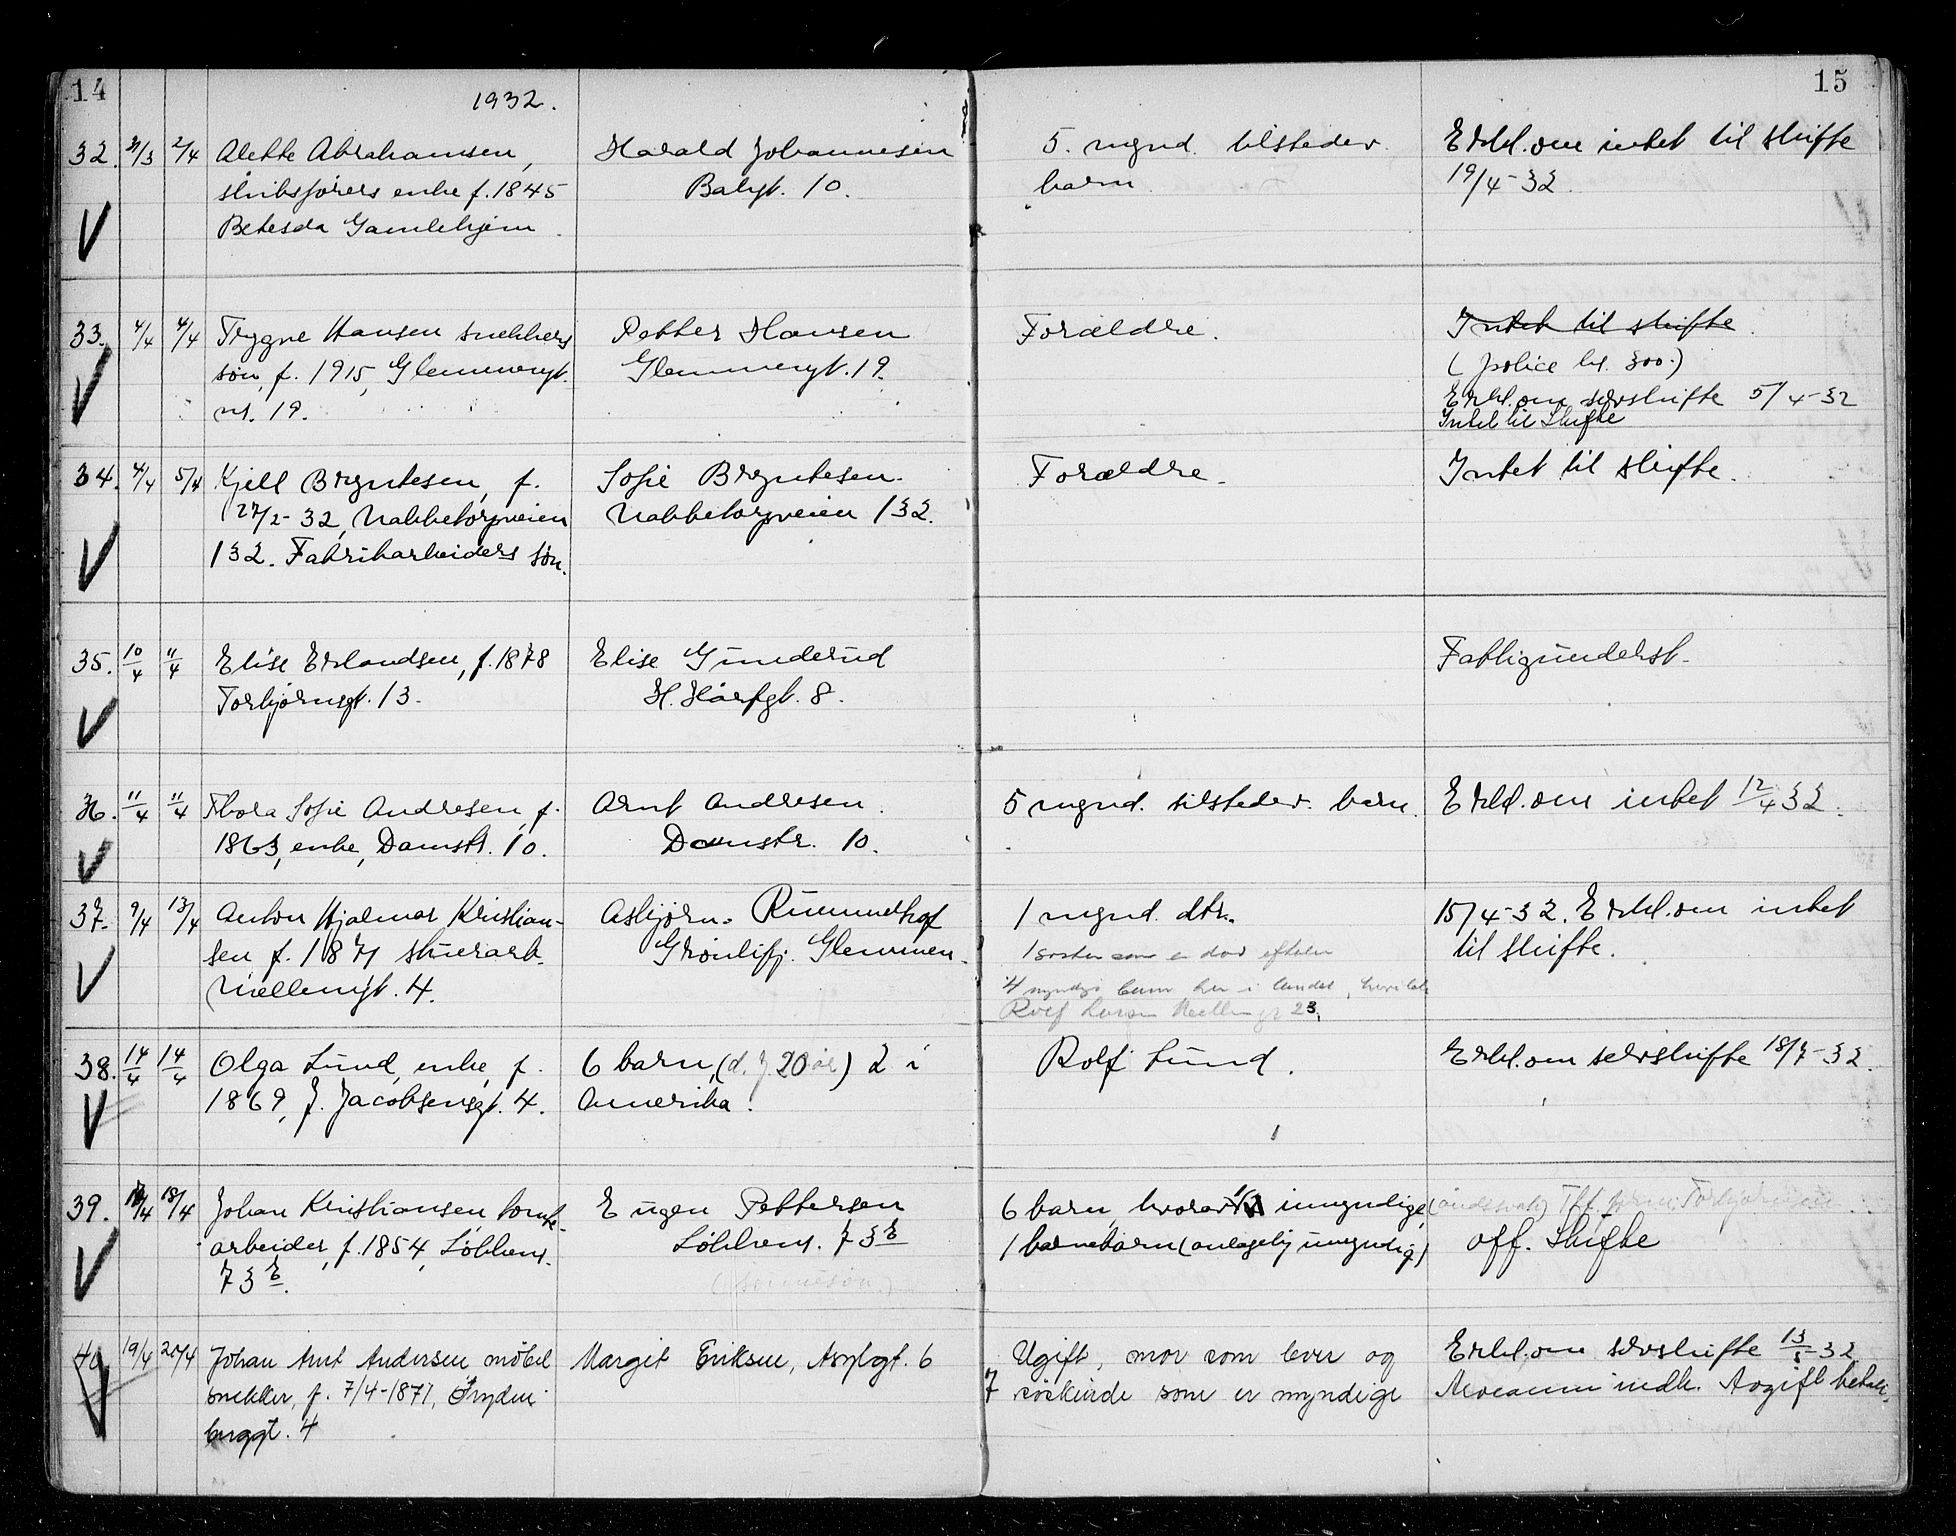 14
1932.
15
32. 2/4 Alette Abrahamsen,
skibsførers enke f. 1845
Betesda Gamlehjem
Harald Johannesen
Balgt. 10.
5. mynd. tilstedev.
barn
Erkl. om intet til skifte
19/4-32.
33. 4/4 4/4 Trygve Hansen snekkers
søn, f. 1915, Glemmengt.
nr. 19.
Petter Hansen
Glemmengt. 19.
Forældre.
Intet til skifte.
(police kr. 300.)
Erkl. om selvskifte 5/4-32
Intet til Skifte
34. 4/4 5/4 Kjell Bryntesen, f.
27/2-32, Nabbetorpveien
132. Fabrikarbeiders søn.
Sofie Bryntesen.
Nabbetorpveien 132.
Forældre.
Intet til skifte.
35. 10/4 11/4 Elise Erlandsen, f. 1878
Torbjørnsgt. 13.
Elise Gunderud
H. Hårfgt. 8.
Fattigunderst.
36. 11/4 11/4 Thora Sofie Andresen, f.
1863, enke, Damstr. 10.
Arnt Andresen
Damstr. 10.
5 mynd. tilstedev. barn.
Erkl. om intet 12/4 32.
37. 9/4 13/4 Anton Hjalmar Kristian-
sen f. 1871 stuerarb.
Møllergt. 4.
Asbjørn Rummelhof
Grønlifj. Glemmen.
1 mynd. dtr.
1 søster som er død efterlater
4 myndige barn her i landet, hvoriblt
Rolf 23,
15/4-32. Erkl. om intet
til skifte.
38. 14/4 14/4 Olga Lund, enke, f.
1869, J. Jacobsensgt. 4.
6 barn, (d. y. 20 år) 2 i
Amerika.
Rolf Lund.
Erkl. om selvskifte 18/7-32.
39. 18/4 18/4 Johan Kristiansen tomte-
arbeider, f. 1854, Løkkens.
73 b.
Eugen Pettersen
Løkkens. 73 b
(sønnesøn)
6 barn, hvorav 1 umyndige, (åndssvak)
1 barnebarn (antagelig umyndig)
Off. Skifte
40 19/4 20/4 Johan Arnt Andersen møbel
snekker, f. 7/4-1871, Fryden
bergt. 4
Margit Eriksen, Asylgt. 6
Ugift, mor som lever og
7 søskende som er myndige
Erkl. om selvskifte 13/5-32
indk. Avgift betalt.